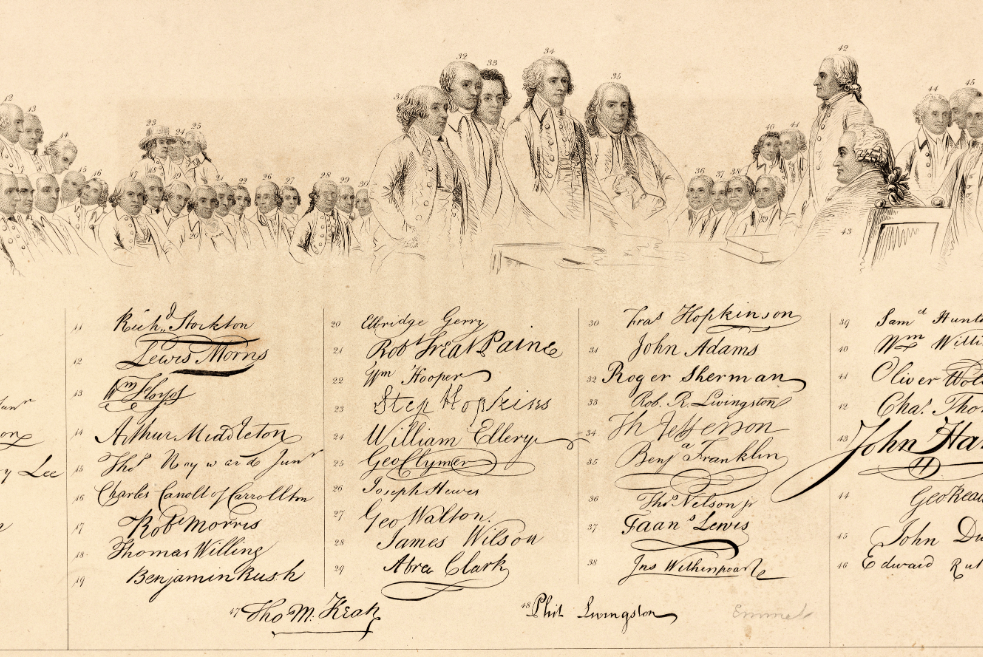 32
34
42
33
35
12
13
31
45
44
23
24
25
40
41
36
37
38
26
27
28
29
30
39
43
11 Richd Stockton
12 Lewis Morris
13 Wm Floyd
14 Arthur Middleton
15 Thos Heyward Junr
16 Charles Carroll of Carrollton
17 Robt Morris
18 Thomas Willing
19 Benjamin Rush
20 Elbridge Gerry
21 Robt Treat Paine
22 Wm Hooper
23 Step Hopkins
24 William Ellery
25 Geo Clymer
26 Joseph Hewes
27 Geo Walton.
28 James Wilson
29 Abra Clark
30 Fras Hopkinson
31 John Adams
32 Roger Sherman
33 Rob. R. Livingston
34 Th Jefferson
35 Benja Franklin
36 Thos Nelson jr
37 Frans Lewis
38 Jno Witherspoon
39 Samel Hunt
40 Wm Willi
41 Oliver Wol
42 Chas. Tho
43 John Han
44 Geo Read
45 John Di
46 Edward Rut
Junr
Lee
47 Tho M. Kean
48 Phil. Livingston
Emmet